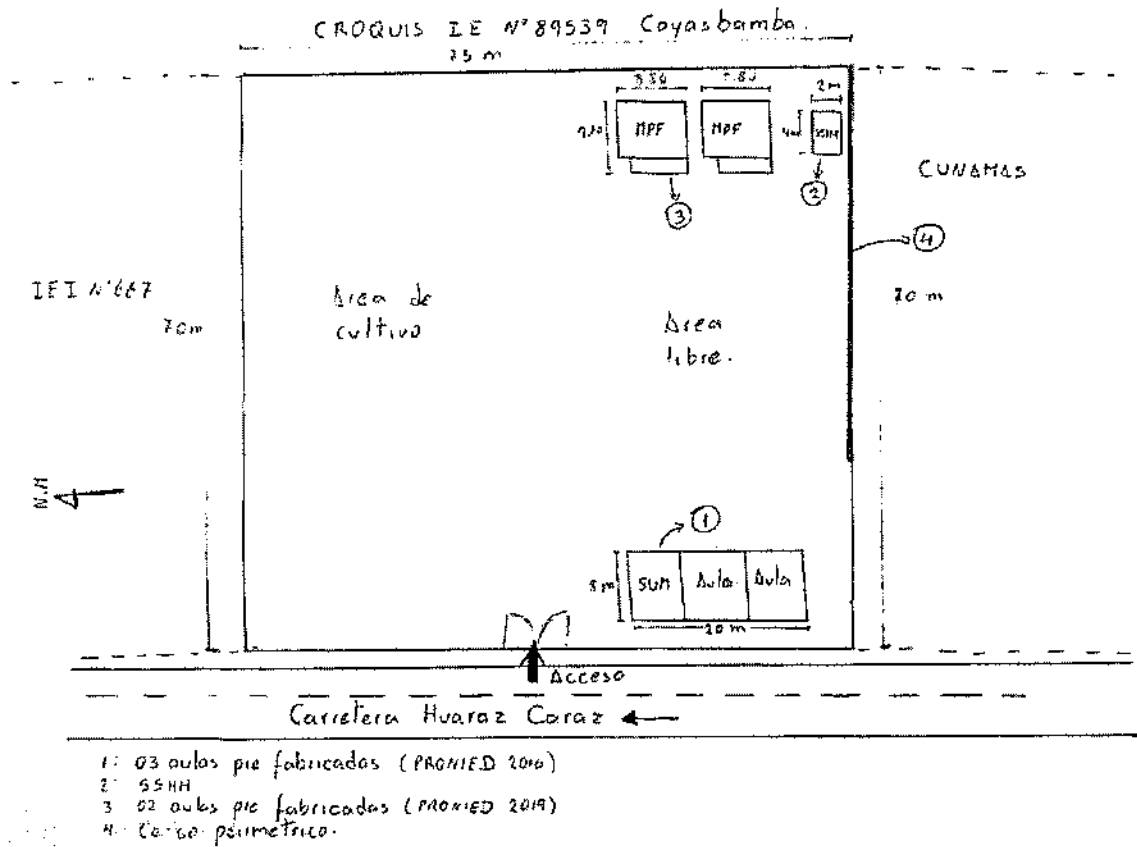 CROQUIS I E Nº 89539 Coyasbamba.
75 m
2 m
MPF
MPF
4m
SSHH
CUNAMAS
2
3
4
IEI Nº 667
Area de
cultivo
Area
libre.
70 m
70m
N.M
1
8 m
SUM
Aula
Aula
20 m
Acceso
Carretera Huaraz Caraz
1: 03 aulas pre fabricadas (PRONIED
2 SSHH
3 02 aulas pre fabricadas (PRONIED 2019)
4. perimetrico.